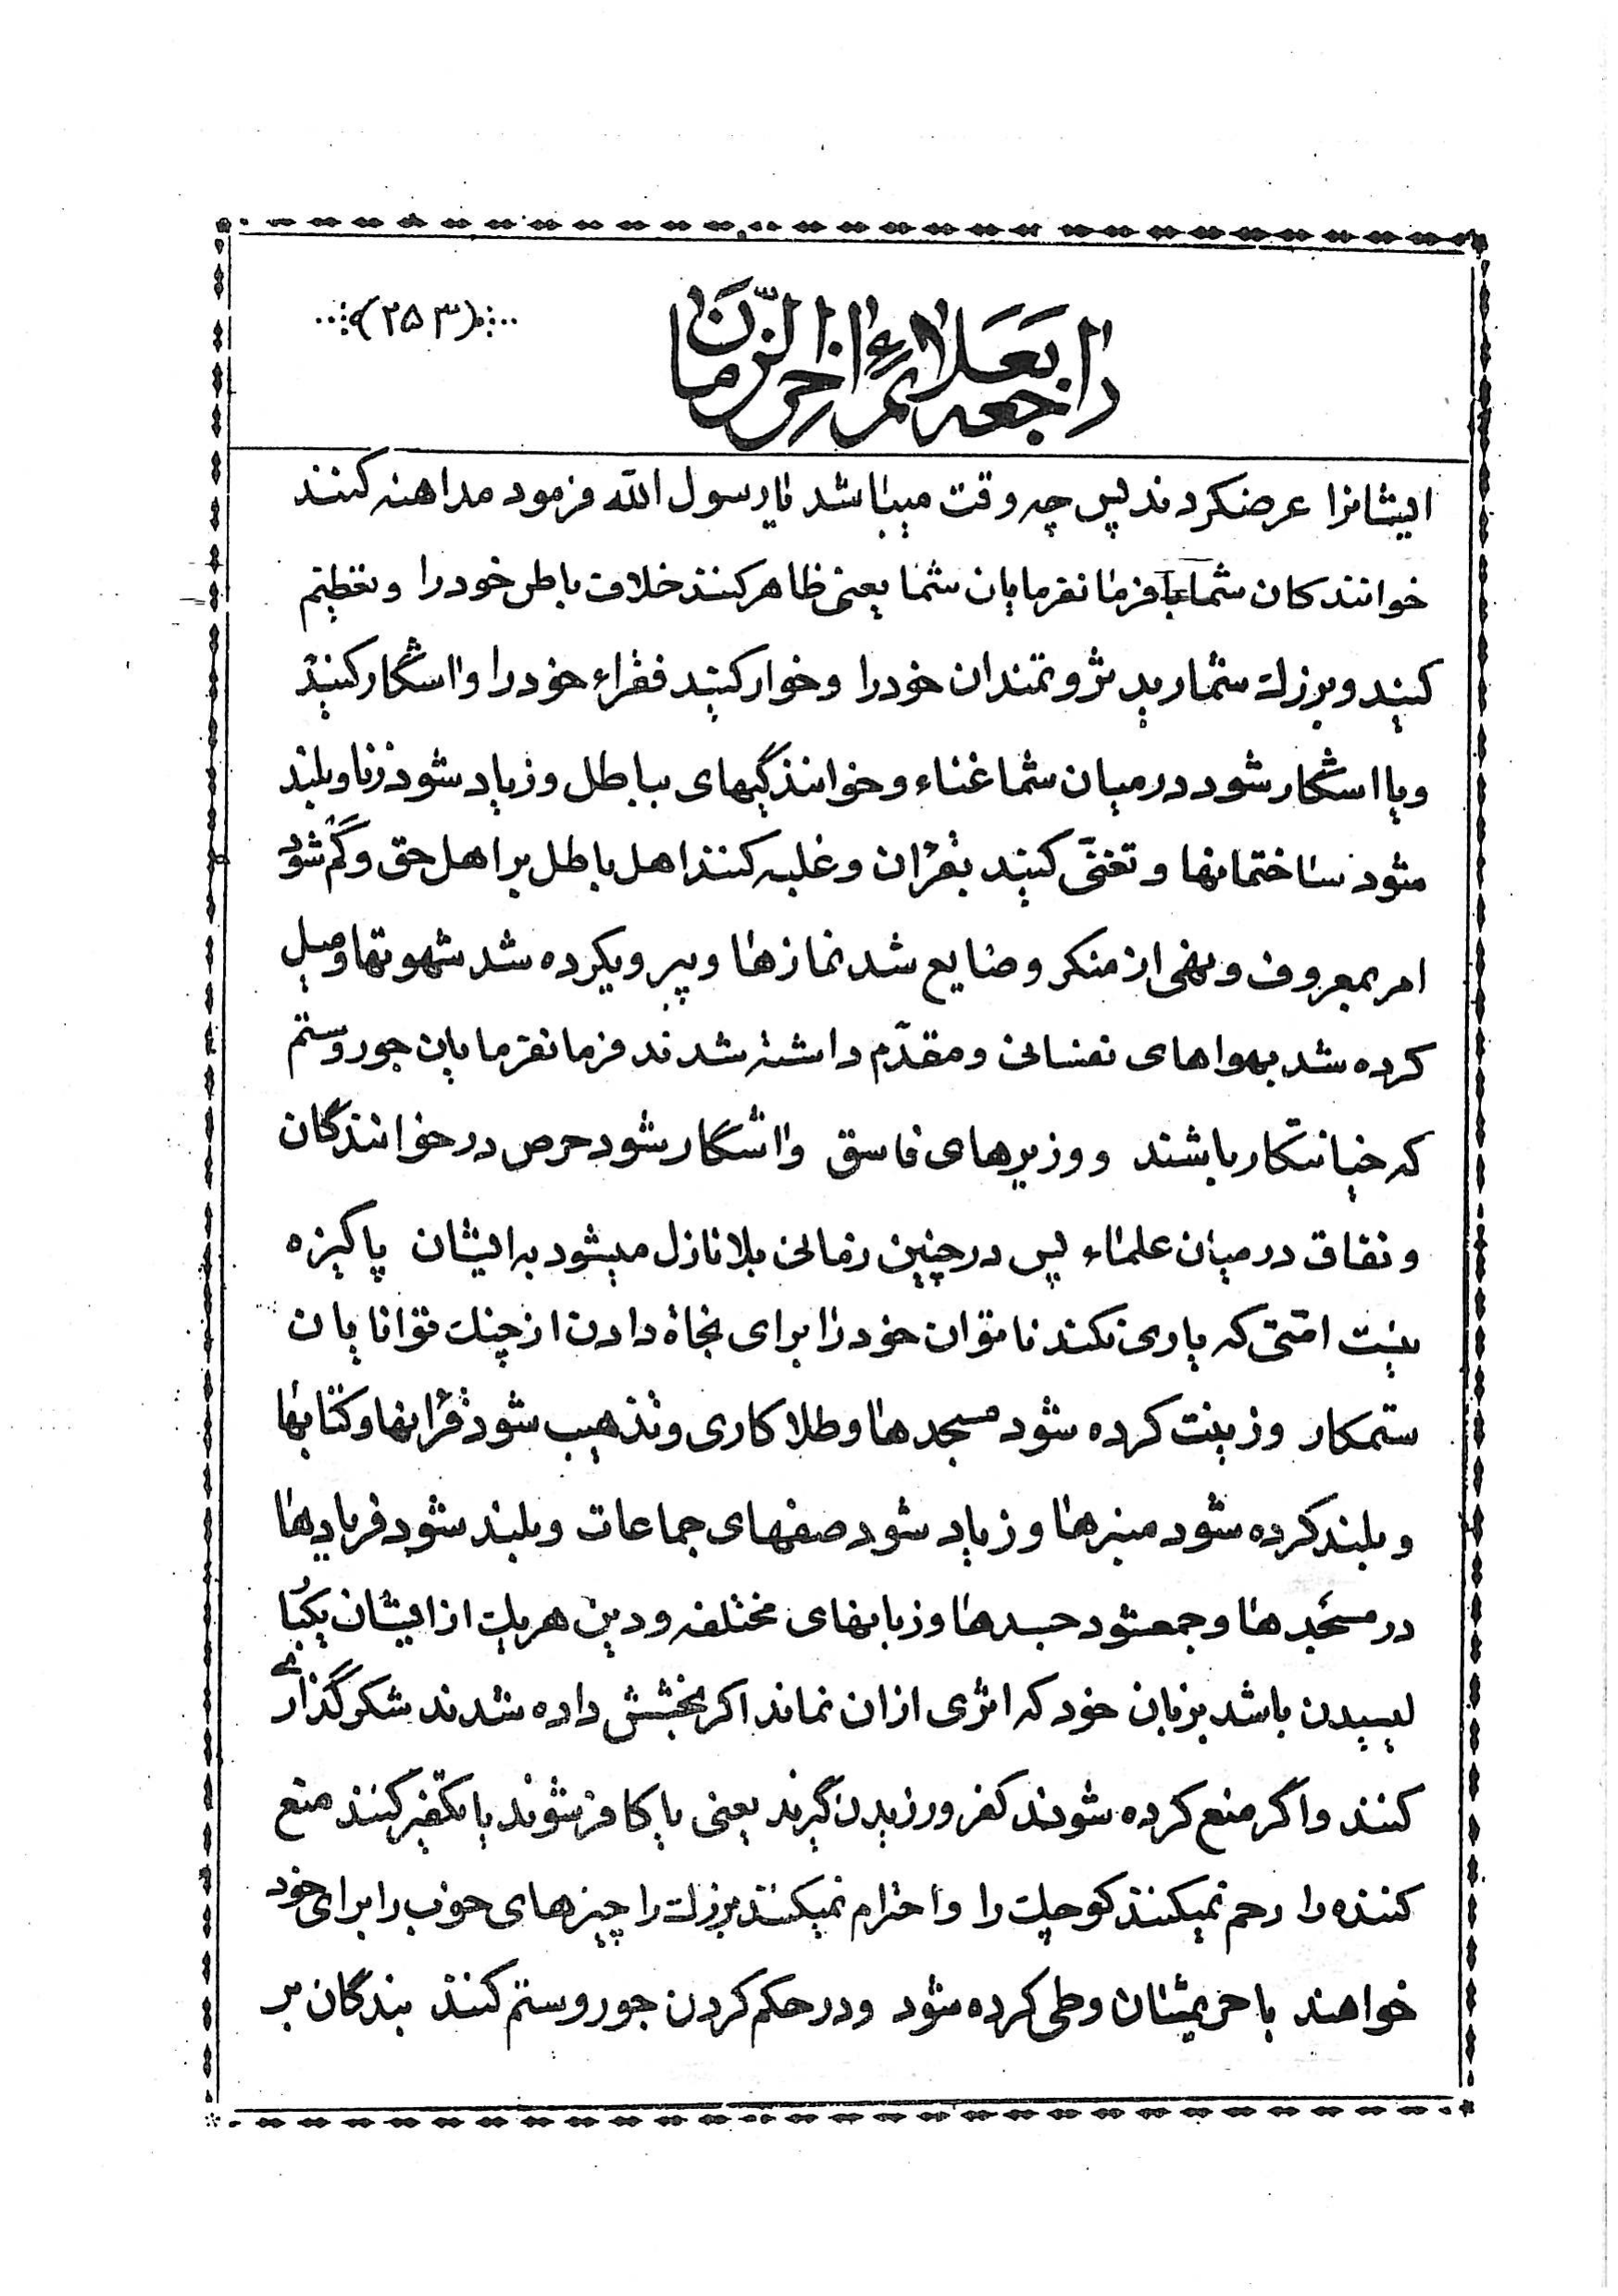 (۲۵۳)
راجعه بعلائم اخر الزمان
ایشانرا عرضکردند پس چه وقت میباشد یا رسول الله فرمود مداهنه کنند
خوانندکان شما با فرمانفرمایان شما یعنی ظاهر کنند خلاف باطن خود را و تعظیم
کنید و بزرك شمارید ثروتمندان خود را و خوار کنید فقراء خود را و اشکار کنید
و یا اشکار شود در میان شما غناء و خوانندگیهای بباطل و زیاد شود زنا و بلند
شود ساختمانها و تغنّی کنید بقران و غلبه کنند اهل باطل بر اهل حق و گم شود
امر بمعروف و نهی از منکر و ضایع شد نمازها و پیرویکرده شد شهوتها و میل
کرده شد بهواهای نفسانی و مقدّم داشته شدند فرمانفرمایان جور و ستم
که خیانتکار باشند و وزیرهای فاسق و اشکار شود حرص در خوانندگان
و نفاق در میان علماء پس در چنین زمانی بلا نازل میشود به ایشان پاکیزه
نیست امّتی که یاری نکند ناتوان خود را برای نجاة دادن از چنك توانایان
ستمکار و زینت کرده شود مسجدها و طلاکاری و تذهیب شود قرانها و کتابها
و بلند کرده شود منبرها و زیاد شود صفهای جماعات و بلند شود فریادها
در مسجدها و جمعشود جسدها و زبانهای مختلفه و دین هریك از ایشان یکبا
لیسیدن باشد بزبان خود که اثری از ان نماند اکر بخشش داده شدند شکر گذاری
کنند و اگر منع کرده شوند کفر ورزیدن گیرند یعنی یا کافر شوند یا تکفیر کنند منع
کننده را رحم نمیکنند کوچك را و احترام نمیکنند بزرك را چیزهای خوب را برای خود
خواهند با حریمشان وطی کرده شود و در حکم کردن جور و ستم کنند بندگان بر